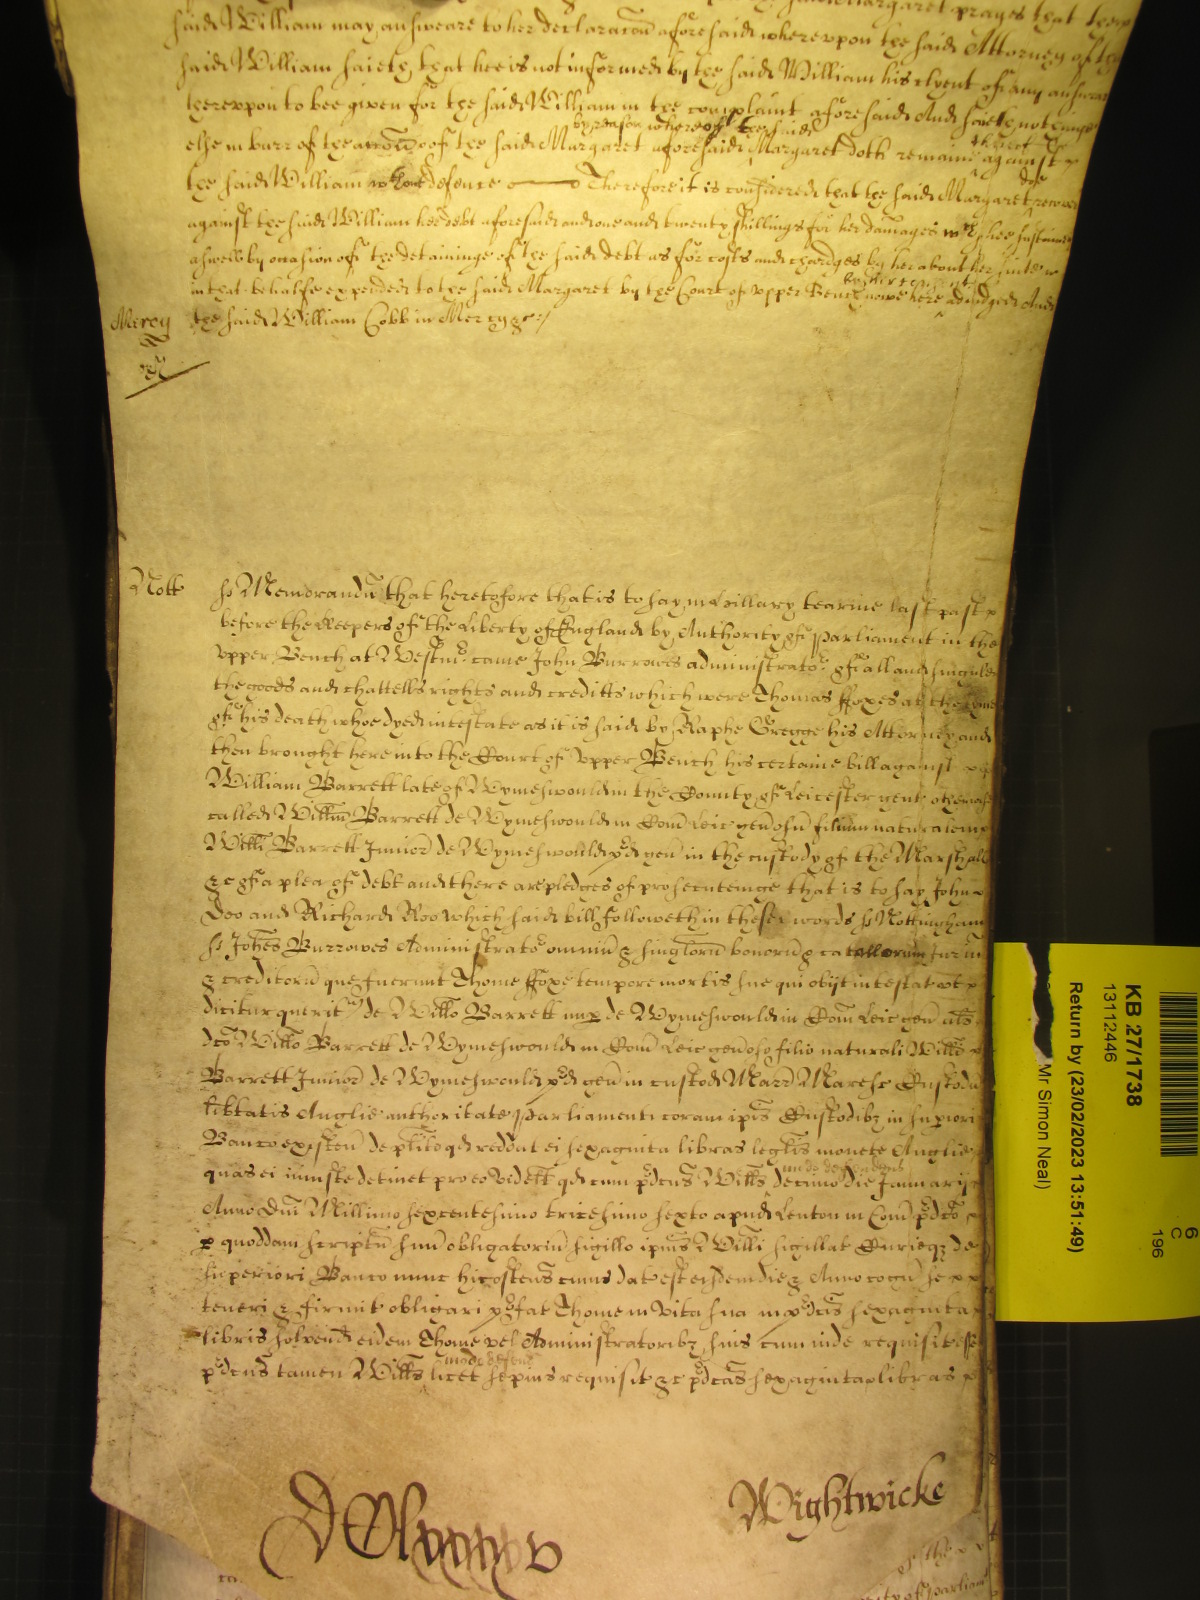 said William may answeare to her declaracon aforesaid wherevpon the said Attorney of the
said William saieth that hee is not informed by the said William his clyent of any answeare
therevpon to bee given for the said William in the complaint aforesaid And saieth nothinge
by reason whereof the said
else in barr of the accon of the said Margaret aforesaid Margaret doth remaine against
the said William wthout defence Therefore it is considered that the said Margaret recover
against the said William her debt aforesaid and one and twenty shillings for her damages wch shee susteined
aswell by occasion of the detaininge of the said debt as for costs and chardges by her about her suite
in that behalfe expended to the said Margaret by the Court of vpper Bench nowe here adiudged And
Mercy the said William Cobb in Mercy &c
Nott ss Memorandu that heretofore that is to say in Hillary tearme last past
before the Keepers of the Liberty of England by Authority of Parliament in the
vpper Bench at Westmr came John Burrowes administrator of all and singuler
the goods and chattells rights and creditts which were Thomas ffoxes at the tyme
of his death whoe dyed intestate as it is said by Raphe Gregge his Attorney and
then brought here into the Court of vpper Bench his certaine bill against
William Barrett late of Wymeswould in the County of Leicester gent otherwise
called Willm Barrett de Wymeswould in Com Leic genosu filium naturalem
Willi Barrett Junior de Wymeswould pd gen in the custody of the Marshall
&c of a plea of debt and there are pledges of prosecuteinge that is to say John
Doo and Richard Roo which said bill followeth in these words ss Nottingham
ss Johes Burrowes Administrator omniu & singloru bonoru & catallorum Juriu
& creditoru que fuerunt Thome ffoxe tempore mortis sue qui obijt intestat vt
dicitur querit de Willo Barrett nup de Wymeswould in Com Leic gen als
dco Willo Barrett de Wymeswould in Com Leic genoso filio naturali Willi
Barrett Junior de Wymeswould pd gen in custod Marr Maresc Custodu
libtatis Anglie authoritate Parliamenti coram ipis Custodibz in supiori
Banco existen de plito qd reddat ei sexaginta libras leglis monete Anglie
quas ei iniuste detinet pro eo videlt qd cum pdcus Wills decimo die Januarij
Anno Dni Millimo sexcentesimo tricesimo sexto apud Lenton in Com pdco
p quoddam scriptu suu obligatoriu sigillo ipius Willi sigillat Curieqz de
superiori Banco nunc hic ostens cuius dat est eisdem die & Anno cogn se
teneri & firmit obligari pfat Thome in vita sua in pdcis sexaginta
libris solvend eidem Thome vel Administratoribz suis cum inde requisit esset
pdcus tamen Wills licet sepius requisit &c pdcas sexaginta libras
Wightwicke
of the
KB 27/1738
13112446
Return by (23/02/2023 13:51:49)
Mr Simon Neal)
6
C
196